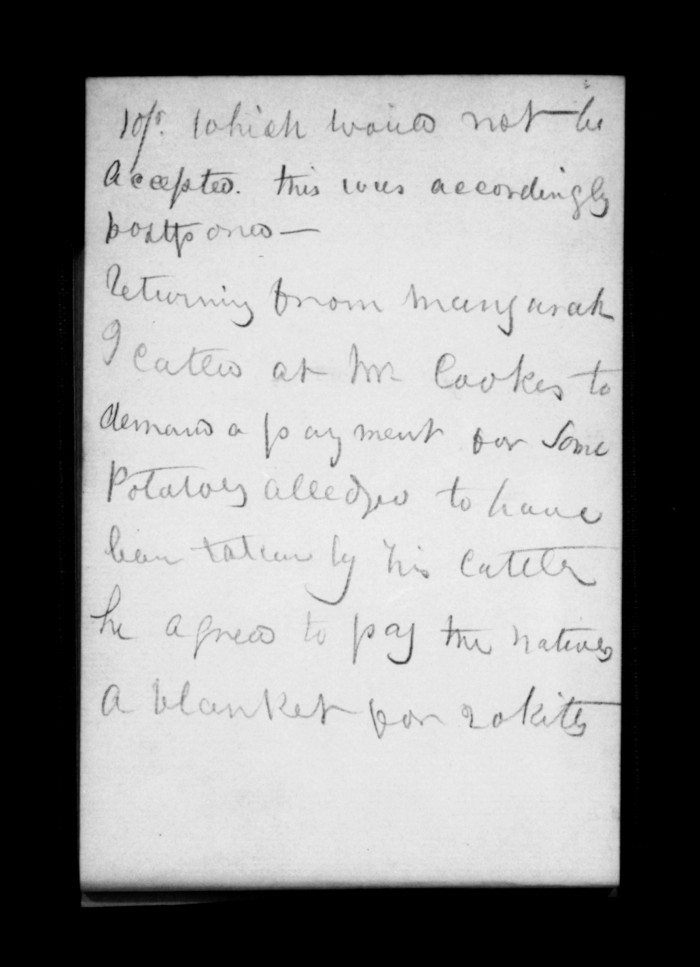 10/. which would not be
Accepted. this was accordingly
postponed —
Returning from Mangarah
I called at Mr Cookes to
demand a payment for Some
Potatoes alledged to have
been taken by his Cattle
he agreed to pay the natives
a blanket for 20 kits